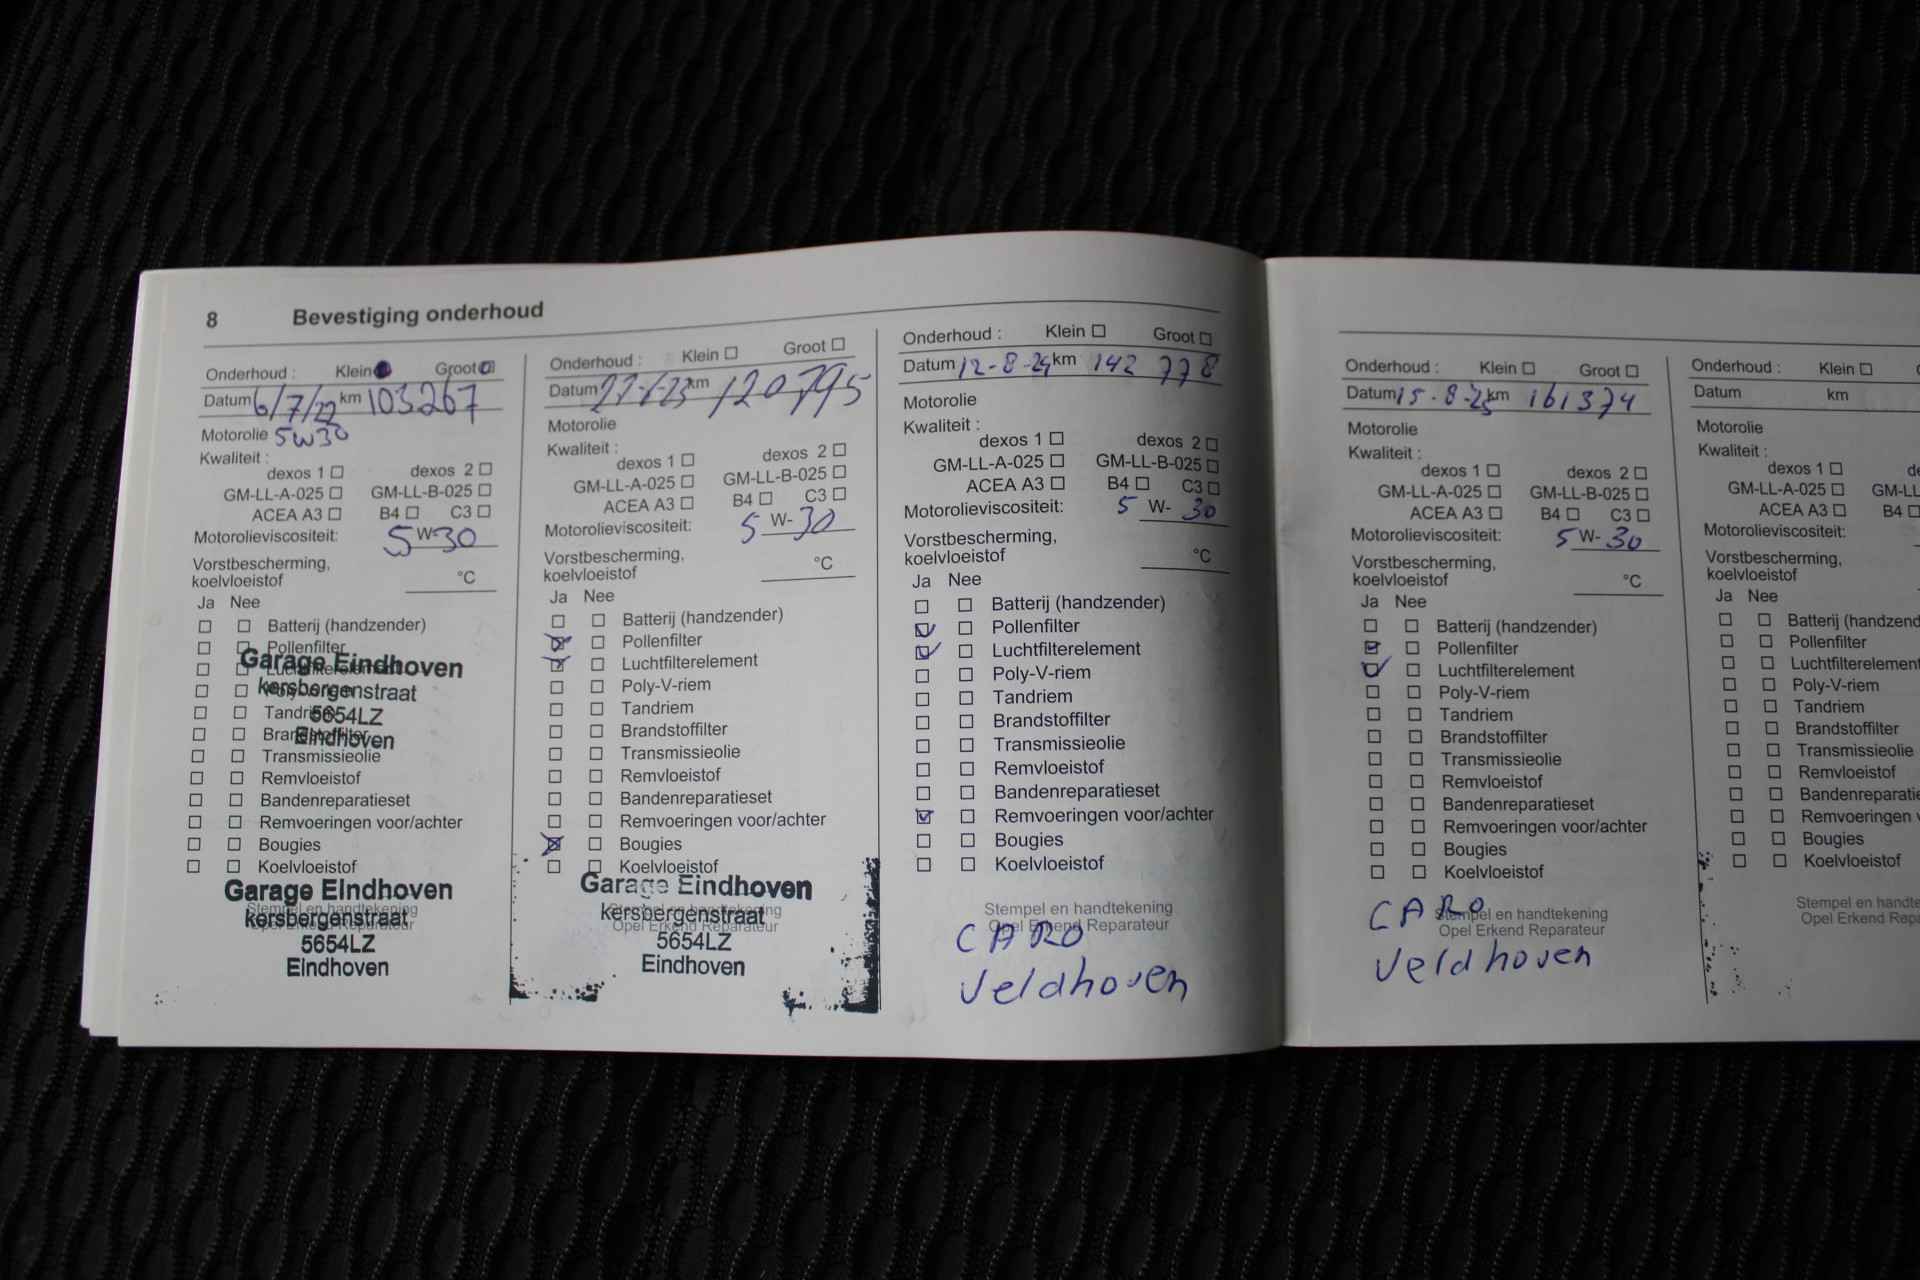 8 Bevestiging onderhoud
Onderhoud : Klein Groot
Datum 6/7/22 km 103267
Motorolie 5W30
Kwaliteit :
dexos 1 dexos 2
GM-LL-A-025 GM-LL-B-025
ACEA A3 B4 C3
Motorolieviscositeit: 5 W-30
Vorstbescherming,
koelvloeistof °C
Ja Nee
Batterij (handzender)
Pollenfilter
Luchtfilterelement
Poly-V-riem
Tandriem
Brandstoffilter
Transmissieolie
Remvloeistof
Bandenreparatieset
Remvoeringen voor/achter
Bougies
Koelvloeistof
Garage Eindhoven
kersbergenstraat
5654LZ
Eindhoven
Stempel en handtekening
Opel Erkend Reparateur
Garage EIndhoven
kersbergenstraat
5654LZ
EIndhoven
Onderhoud : Klein Groot
Datum km 120795
Motorolie
Kwaliteit :
dexos 1 dexos 2
GM-LL-A-025 GM-LL-B-025
ACEA A3 B4 C3
Motorolieviscositeit: 5 W-30
Vorstbescherming,
koelvloeistof °C
Ja Nee
Batterij (handzender)
Pollenfilter
Luchtfilterelement
Poly-V-riem
Tandriem
Brandstoffilter
Transmissieolie
Remvloeistof
Bandenreparatieset
Remvoeringen voor/achter
Bougies
Koelvloeistof
Stempel en handtekening
Opel Erkend Reparateur
Garage Eindhoven
kersbergenstraat
5654LZ
Eindhoven
Onderhoud : Klein Groot
Datum 12-8-24 km 142 778
Motorolie
Kwaliteit :
dexos 1 dexos 2
GM-LL-A-025 GM-LL-B-025
ACEA A3 B4 C3
Motorolieviscositeit: 5 W- 30
Vorstbescherming,
koelvloeistof °C
Ja Nee
Batterij (handzender)
Pollenfilter
Luchtfilterelement
Poly-V-riem
Tandriem
Brandstoffilter
Transmissieolie
Remvloeistof
Bandenreparatieset
Remvoeringen voor/achter
Bougies
Koelvloeistof
Stempel en handtekening
Opel Erkend Reparateur
CARO
Veldhoven
Onderhoud : Klein Groot
Datum 15-8-25 km 161374
Motorolie
Kwaliteit :
dexos 1 dexos 2
GM-LL-A-025 GM-LL-B-025
ACEA A3 B4 C3
Motorolieviscositeit: 5 W- 30
Vorstbescherming,
koelvloeistof °C
Ja Nee
Batterij (handzender)
Pollenfilter
Luchtfilterelement
Poly-V-riem
Tandriem
Brandstoffilter
Transmissieolie
Remvloeistof
Bandenreparatieset
Remvoeringen voor/achter
Bougies
Koelvloeistof
Stempel en handtekening
Opel Erkend Reparateur
CARO
Veldhoven
Onderhoud : Klein
Datum km
Motorolie
Kwaliteit :
dexos 1
GM-LL-A-025 GM-LL
ACEA A3 B4
Motorolieviscositeit:
Vorstbescherming,
koelvloeistof
Ja Nee
Batterij (handzend
Pollenfilter
Luchtfilterelement
Poly-V-riem
Tandriem
Brandstoffilter
Transmissieolie
Remvloeistof
Bandenreparatie
Remvoeringen v
Bougies
Koelvloeistof
Stempel en handte
Opel Erkend Repa